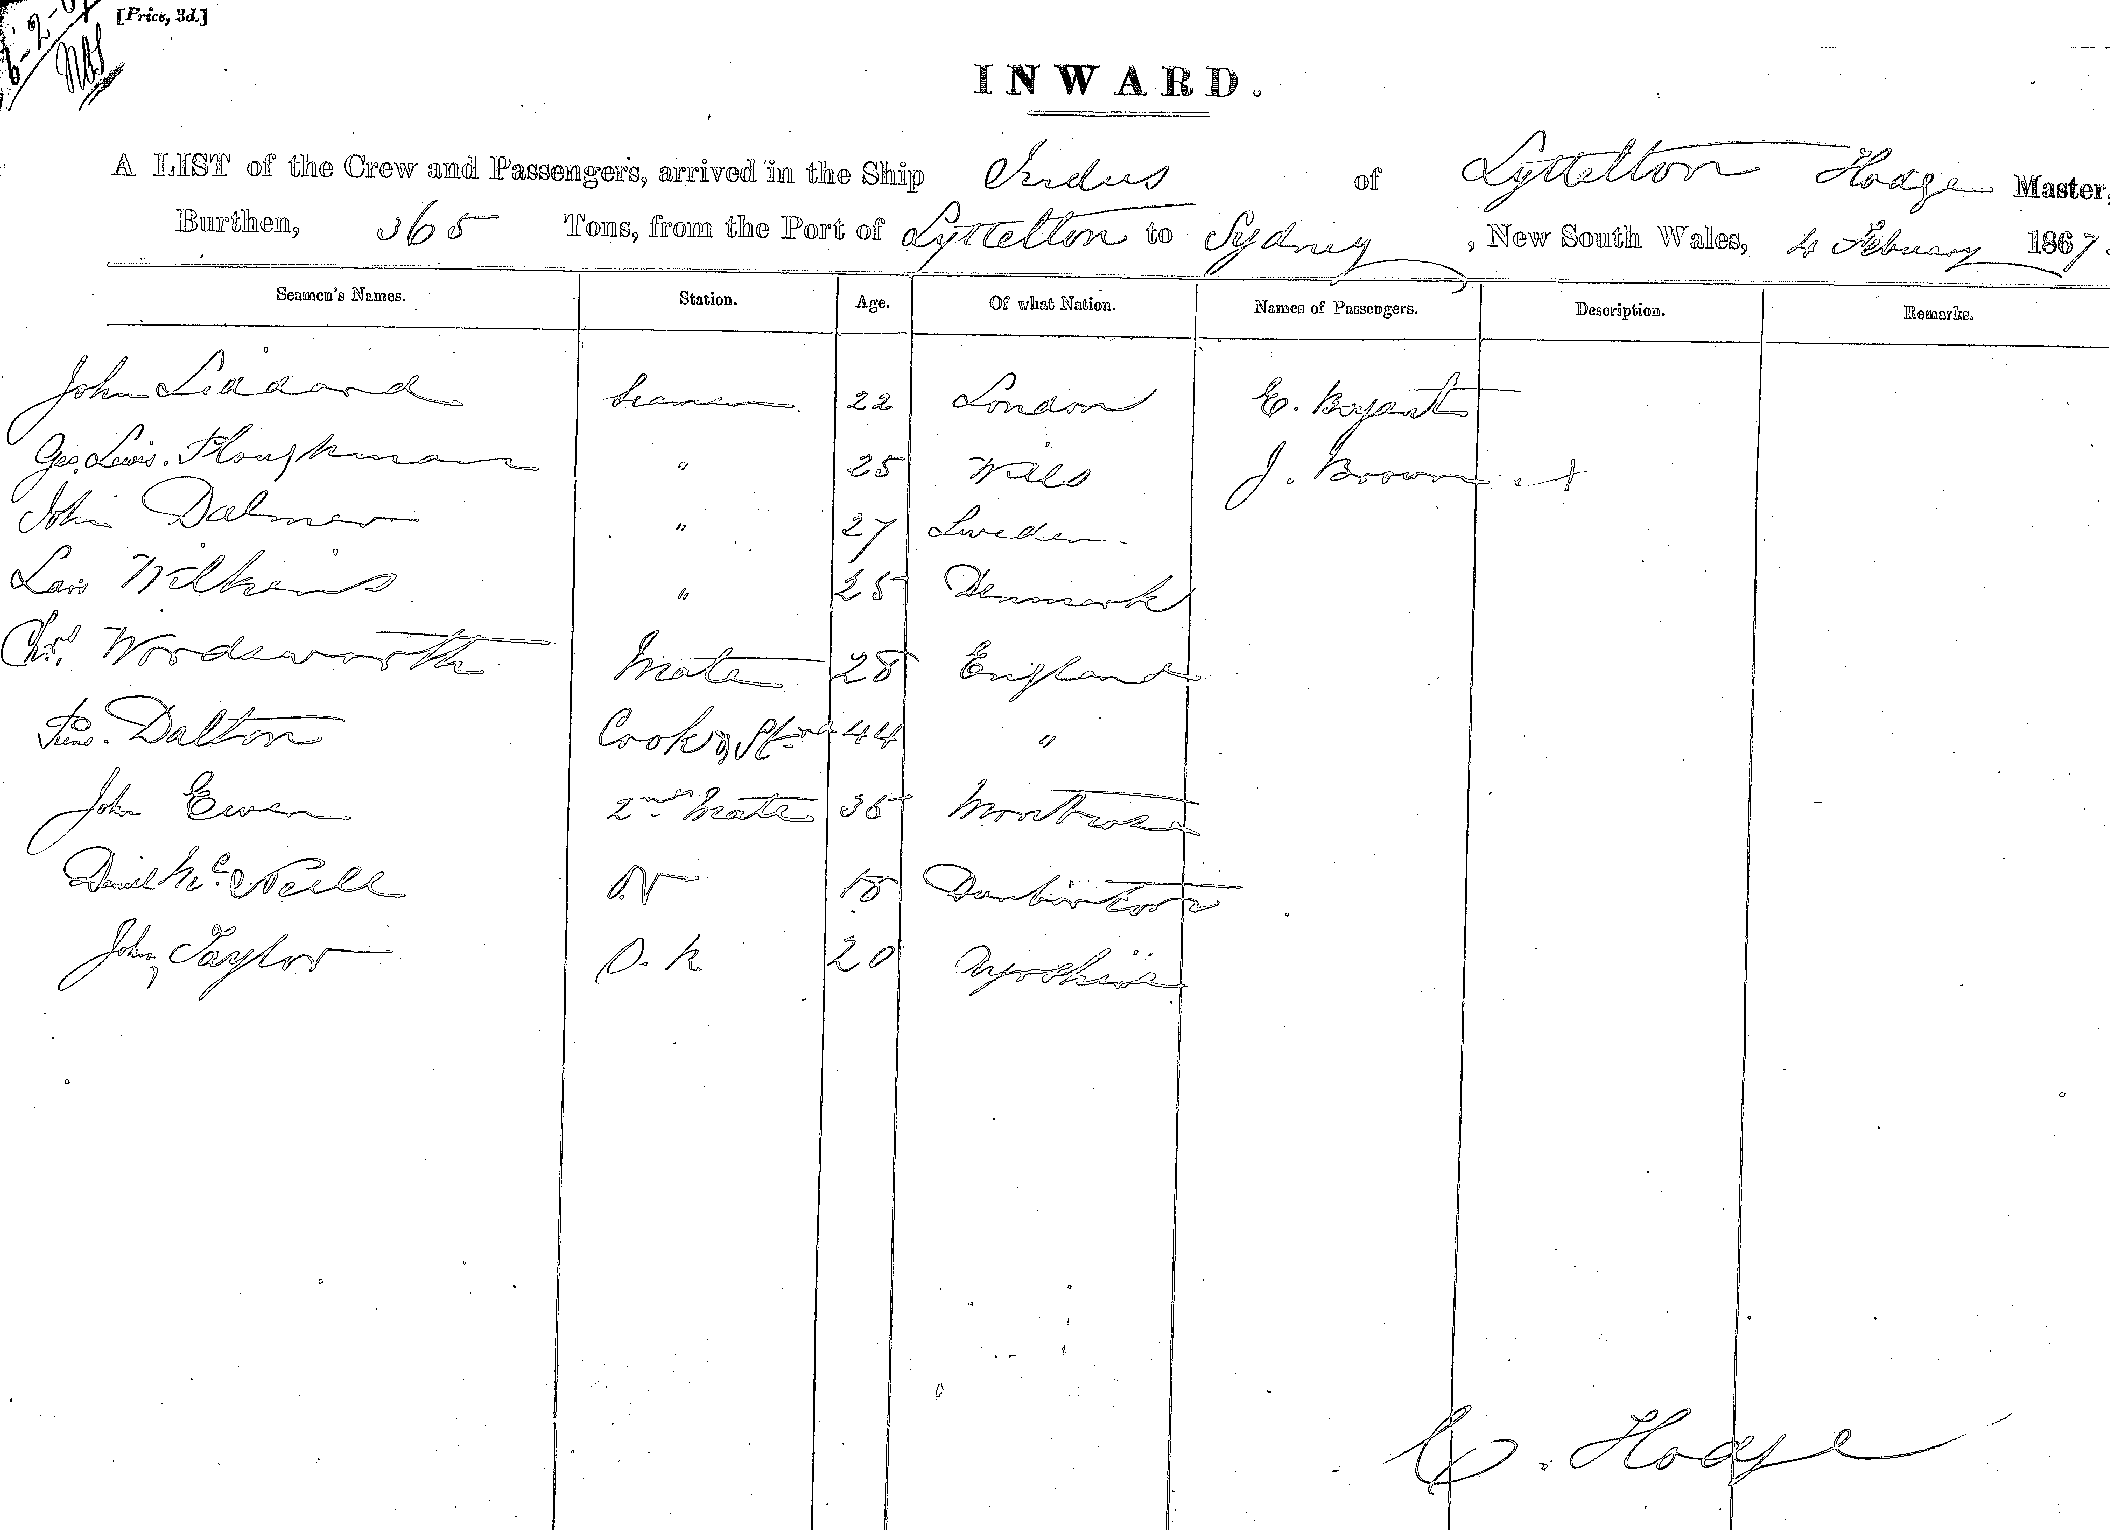 6-2-67
[Price, 3d.]
INWARD.
A LIST of the Crew and Passengers, arrived in the Ship Indus of Lyttelton Hodge Master,
Burthen, 365 Tons, from the Port of Lyttelton to Sydney, New South Wales, 4 February 1867.
Seamen's Names. Station. Age. Of what Nation. Names of Passengers. Description. Remarks.
John Liddard Seaman 22 London E. Bryant
Geo. Lewis Ploughman " 25 Wills J. Brown
John Dalmer " 27 Sweden
Lars Wilkens " 25 Denmark
Chs. Wordsworth Mate 28 England
Dalton Cook & 44 "
John Ewen 2nd Mate 35 Montrose
Daniel McNeill 18 Dumbarton
John Taylor 20 Ayrshire
C. Hodge